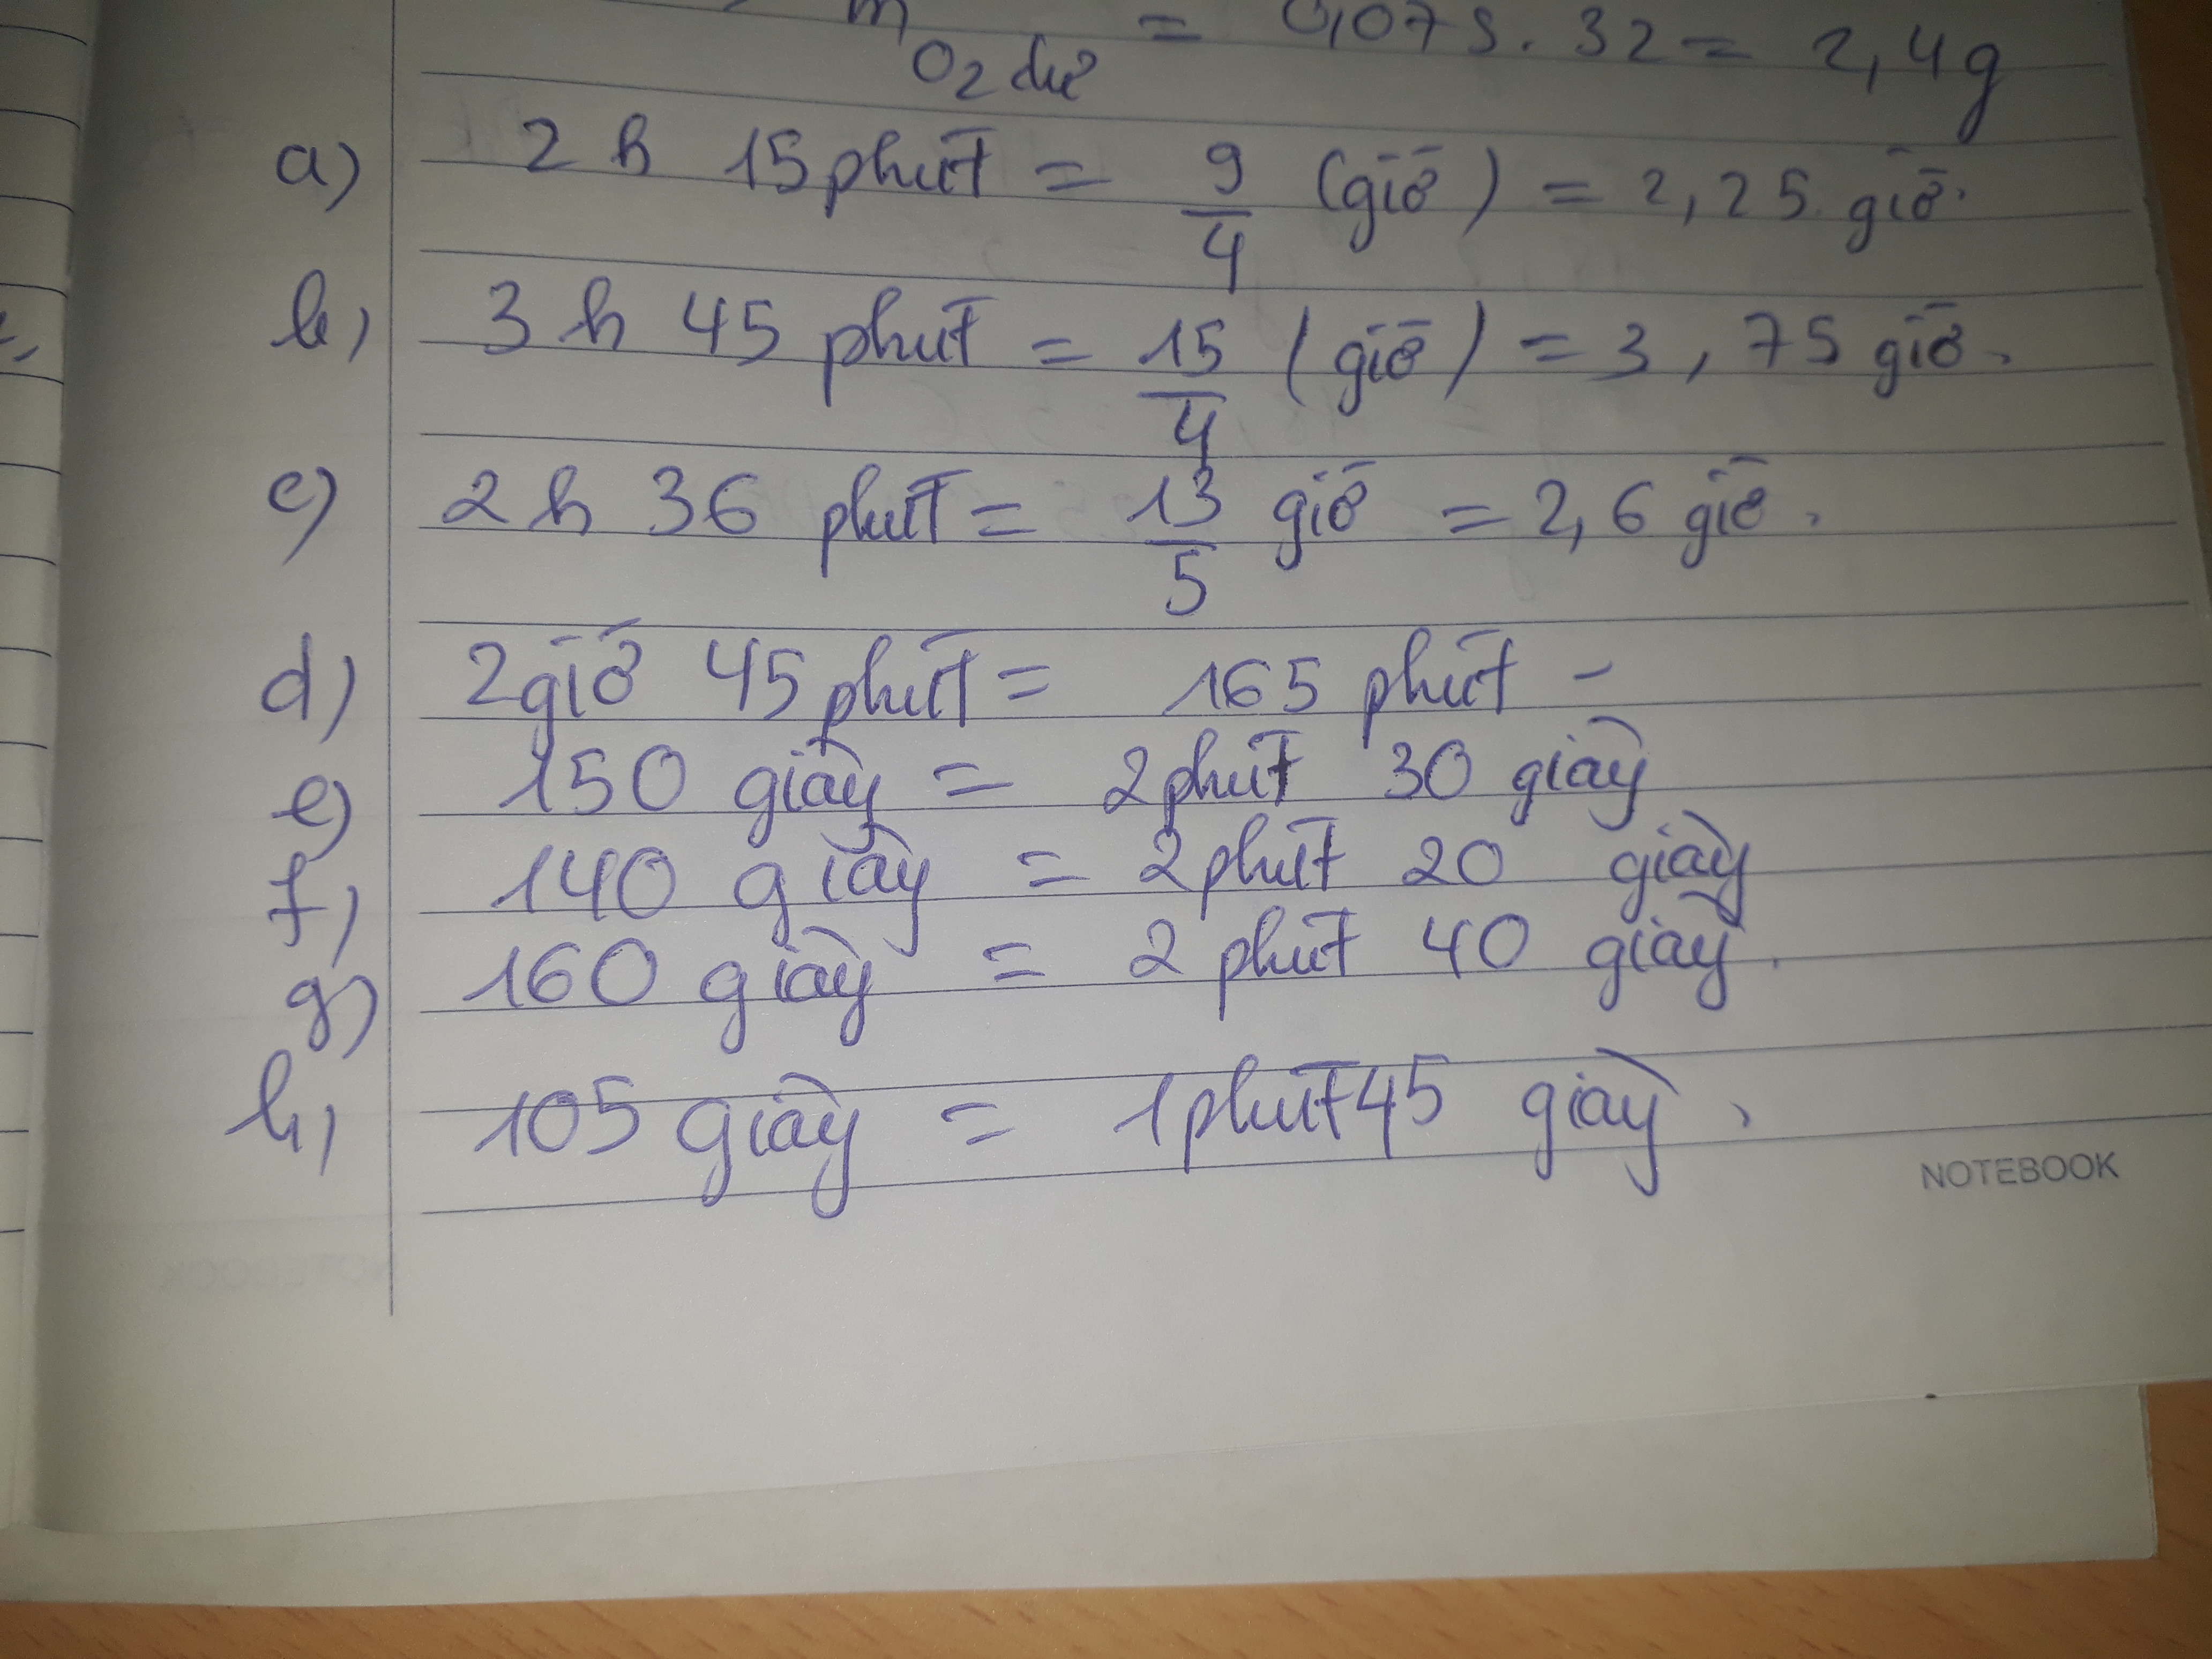 m O2 dư = 0,075 . 32 = 2,4g
a) 2 h 15 phút = 9/4 (giờ) = 2,25 giờ.
b) 3 h 45 phút = 15/4 (giờ) = 3,75 giờ.
c) 2 h 36 phút = 13/5 giờ = 2,6 giờ.
d) 2 giờ 45 phút = 165 phút -
e) 150 giây = 2 phút 30 giây
f) 140 giây = 2 phút 20 giây
g) 160 giây = 2 phút 40 giây.
h) 105 giây = 1 phút 45 giây.
NOTEBOOK